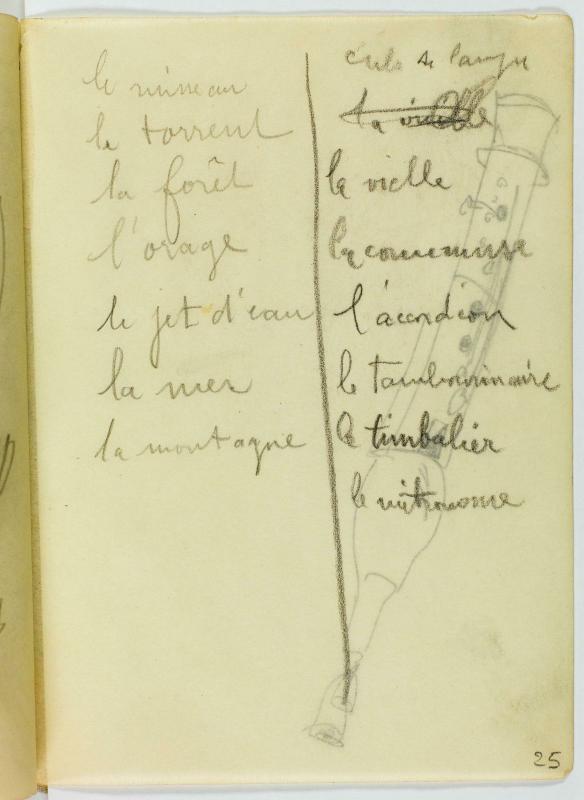 le ruisseau
le torrent
la forêt
l'orage
le jet d'eau
la mer
la montagne
culs de lampe
la vielle
la vielle
la cornemuse
l'acordéon
le tambourinaire
le timbalier
le métronome
25